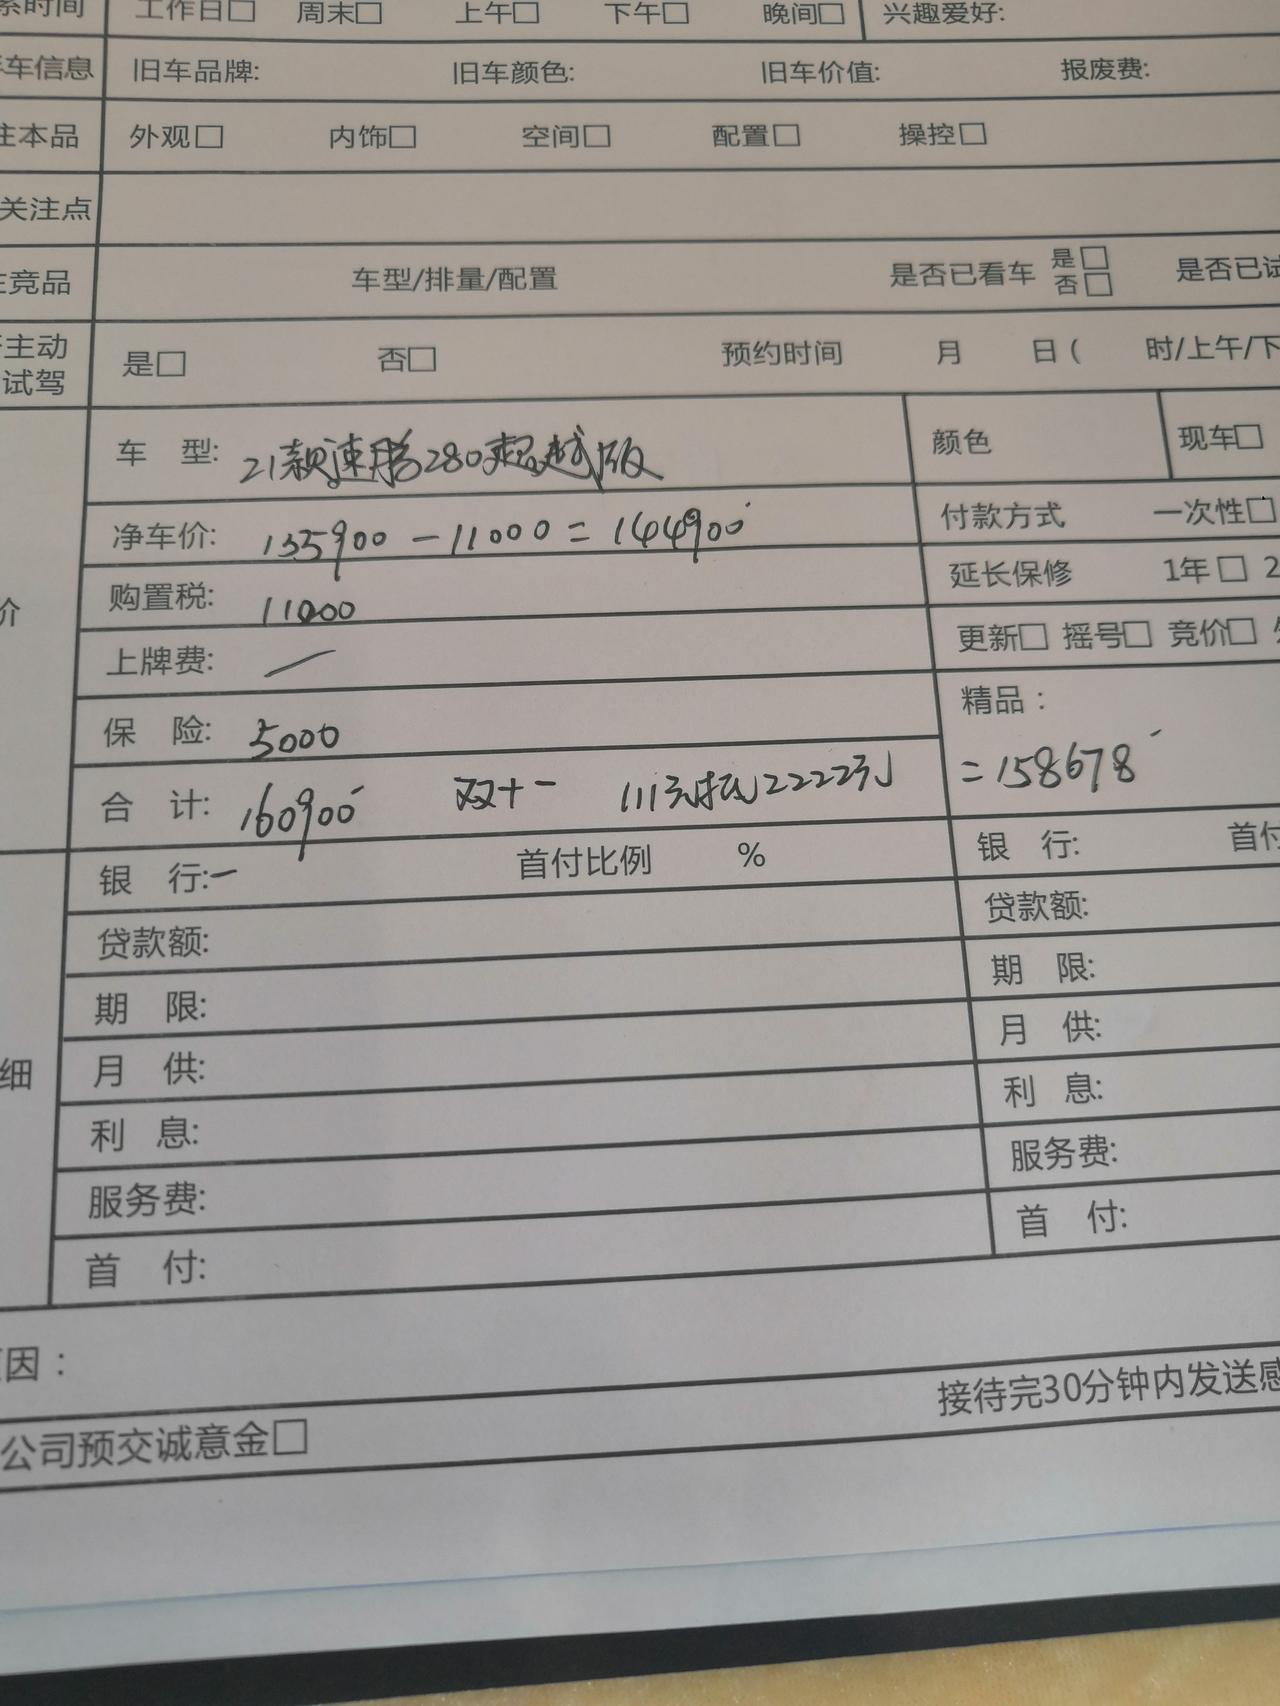 系时间 工作日□ 周末□ 上午□ 下午□ 晚间□ 兴趣爱好:
车信息 旧车品牌: 旧车颜色: 旧车价值: 报废费:
注本品 外观□ 内饰□ 空间□ 配置□ 操控□
关注点
竞品 车型/排量/配置 是否已看车 是□ 否□ 是否已试
主动试驾 是□ 否□ 预约时间 月 日( 时/上午/下
车 型: 21款速腾280超越版 颜色 现车□
净车价: 155900-11000=144900 付款方式 一次性□
购置税: 11000 延长保修 1年□ 2
价
上牌费: / 更新□ 摇号□ 竞价□
保 险: 5000 精品:
合 计: 160900 双十一 111元抵2222元 =158678
银 行:- 首付比例 % 银 行: 首付
贷款额: 贷款额:
期 限: 期 限:
月 供: 月 供:
细
利 息: 利 息:
服务费: 服务费:
首 付: 首 付:
因:
接待完30分钟内发送感
公司预交诚意金□